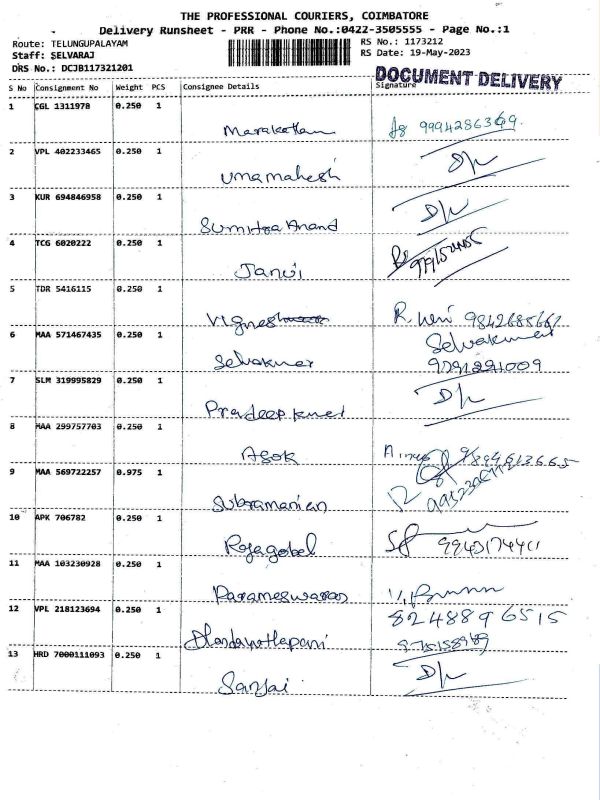 THE PROFESSIONAL COURIERS, COIMBATORE
Delivery Runsheet - PRR - Phone No.:0422-3505555 - Page No.:1
Route: TELUNGUPALAYAM RS No.: 1173212
Staff: SELVARAJ RS Date: 19-May-2023
DRS No.: DCJB117321201 DOCUMENT DELIVERY
S No Consignment No Weight PCS Consignee Details Signature
1 CGL 1311978 0.250 1
9994286369
2 VPL 402233465 0.250 1
Umamahesh D/L
3 KUR 694846958 0.250 1
Sumitra Anand D/L
4 TCG 6020222 0.250 1
Janvi
5 TDR 5416115 0.250 1
Vignesh
6 MAA 571467435 0.250 1 Selvakumar
Selvakumar 9791291009
7 SLM 319995829 0.250 1
Pradeepkumar D/L
8 MAA 299757703 0.250 1
Asok 9894613665
9 MAA 569722257 0.975 1
Subramanian
10 APK 706782 0.250 1
Rajagobal
11 MAA 103230928 0.250 1
Parameswaran
12 VPL 218123694 0.250 1 8248896515
13 HRD 7000111093 0.250 1
Sanjai D/L